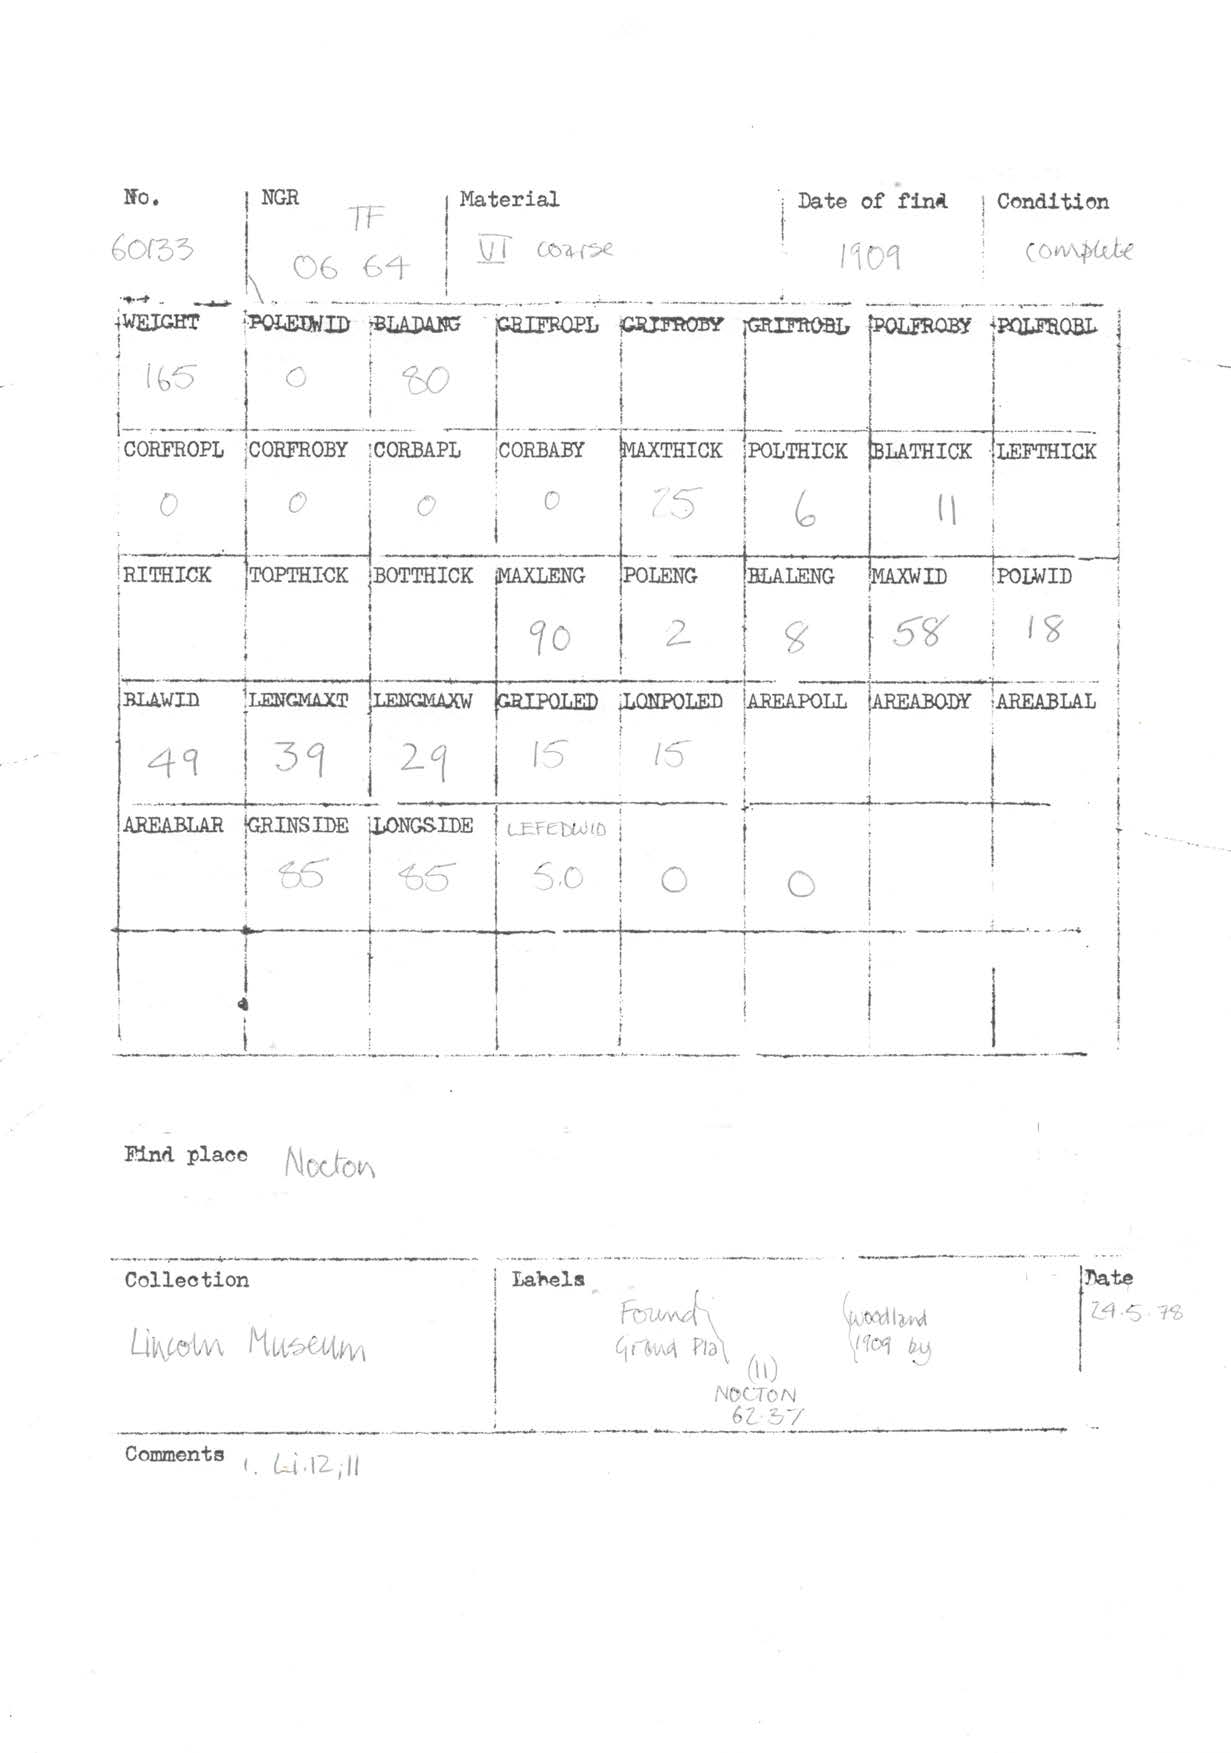 No. NGR Material Date of find Condition
TF
60133 06 64 VI coarse 1909 complete
WEIGHT POLEDWID BLADANG GRIFROPL GRIFROBY GRIFROBL POLFROBY POLFROBL
165 0 80
CORFROPL CORFROBY CORBAPL CORBABY MAXTHICK POLTHICK BLATHICK LEFTHICK
0 0 0 0 25 6 11
RITHICK TOPTHICK BOTTHICK MAXLENG POLENG BLALENG MAXWID POLWID
90 2 8 58 18
BLAWID LENGMAXT LENGMAXW GRIPOLED LONPOLED AREAPOLL AREABODY AREABLAL
49 39 29 15 15
AREABLAR GRINSIDE LONGSIDE LEFEDWID
85 85 5.0 0 0
Find place Nocton
Collection Labels Date
Found woodland 24.5.78
Lincoln Museum Grand Pla 1909 by
(11)
NOCTON
62.37
Comments 1. Li.12;11